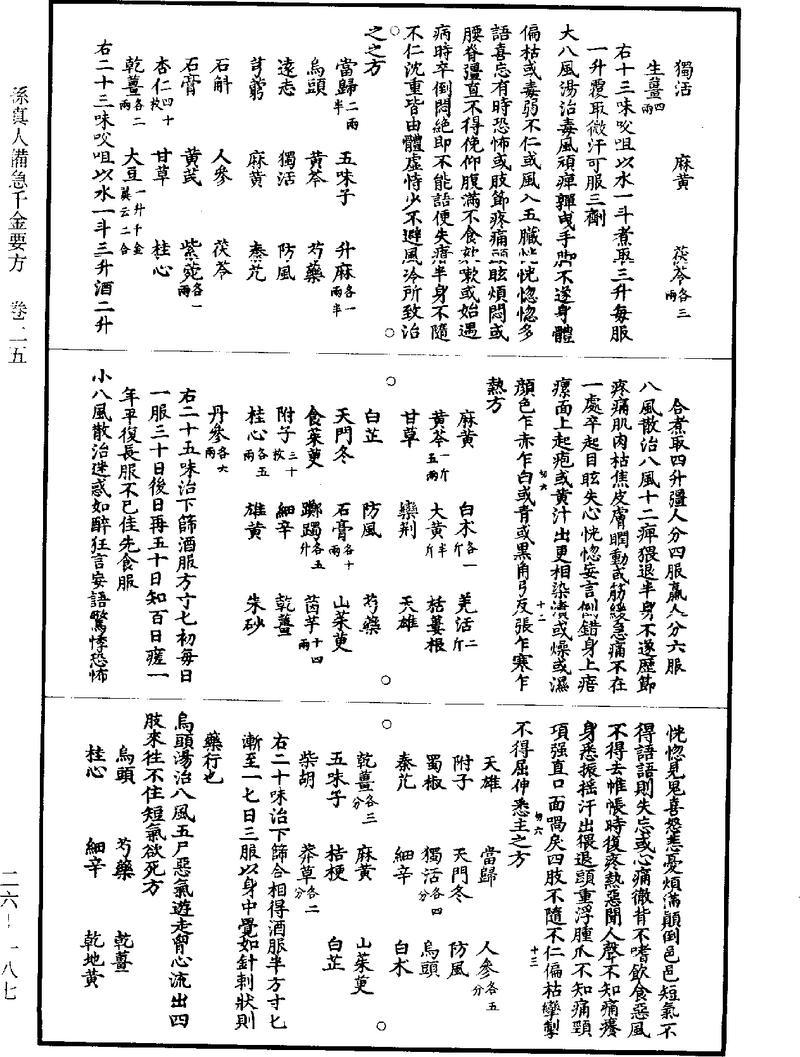 獨活　麻黃　茯苓各三兩
生薑四兩
右十三味㕮咀以水一斗煮取三升每服
一升覆取微汗可服三劑
大八風湯治毒風頑痺嚲曳手腳不遂身體
偏枯或毒弱不仁或風入五臟恍恍惚惚多
語喜忘有時恐怖或肢節疼痛頭眩煩悶或
腰脊彊直不得俛仰腹滿不食欬嗽或始遇
病時卒倒悶絕即不能語便失瘖半身不隨
不仁沈重皆由體虛恃少不避風冷所致治
之之方
當歸二兩半　五味子　升麻各一兩半
烏頭　黃芩　芍藥
遠志　獨活　防風
芎藭　麻黃　秦艽
石斛　人參　茯苓
石膏　黃芪　紫菀各一兩
杏仁四十枚　甘草　桂心
乾薑各二兩　大豆一升千金翼云二合
右二十三味㕮咀以水一斗三升酒二升
合煮取四升彊人分四服羸人分六服
八風散治八風十二痺猥退半身不遂歷節
疼痛肌肉枯焦皮膚瞤動或筋緩急痛不在
一處卒起目眩失心恍惚妄言倒錯身上瘔
瘰面上起疱或黃汁出更相染漬或燥或濕
顏色乍赤乍白或青或黑角弓反張乍寒乍
熱方
麻黃　白朮各一斤　羌活二斤
黃芩一斤五兩　大黃半斤　栝蔞根
甘草　欒荆　天雄
白芷　防風　芍藥
天門冬　石膏各十兩　山茱萸
食茱萸　躑躅各五升　茵芋十四兩
附子三十枚　細辛　乾薑
桂心各五兩　雄黃　朱砂
丹參各六兩
右二十五味治下篩酒服方寸匕初每日
一服三十日後日再五十日知百日瘥一
年平復長服不已佳先食服
小八風散治迷惑如醉狂言妄語驚悸恐怖
恍惚見鬼喜怒悲憂煩滿顛倒邑邑短氣不
得語語則失忘或心痛徹背不嗜飲食惡風
不得去帷帳時復疼熱惡聞人聲不知痛癢
身悉振搖汗出猥退頭重浮腫爪不知痛頸
項强直口面喎戾四肢不隨不仁偏枯攣掣
不得屈伸悉主之方
天雄　當歸　人參各五分
附子　天門冬　防風
蜀椒　獨活各四分　烏頭
秦艽　細辛　白朮
乾薑各三分　麻黃　山茱萸
五味子　桔梗　白芷
柴胡　莽草各二分
右二十味治下篩合相得酒服半方寸匕
漸至一匕日三服以身中覺如針刺狀則
藥行也
烏頭湯治八風五尸惡氣遊走胷心流出四
肢來往不住短氣欲死方
烏頭　芍藥　乾薑
桂心　細辛　乾地黃
孫真人備急千金要方　卷二五
二六-一八七